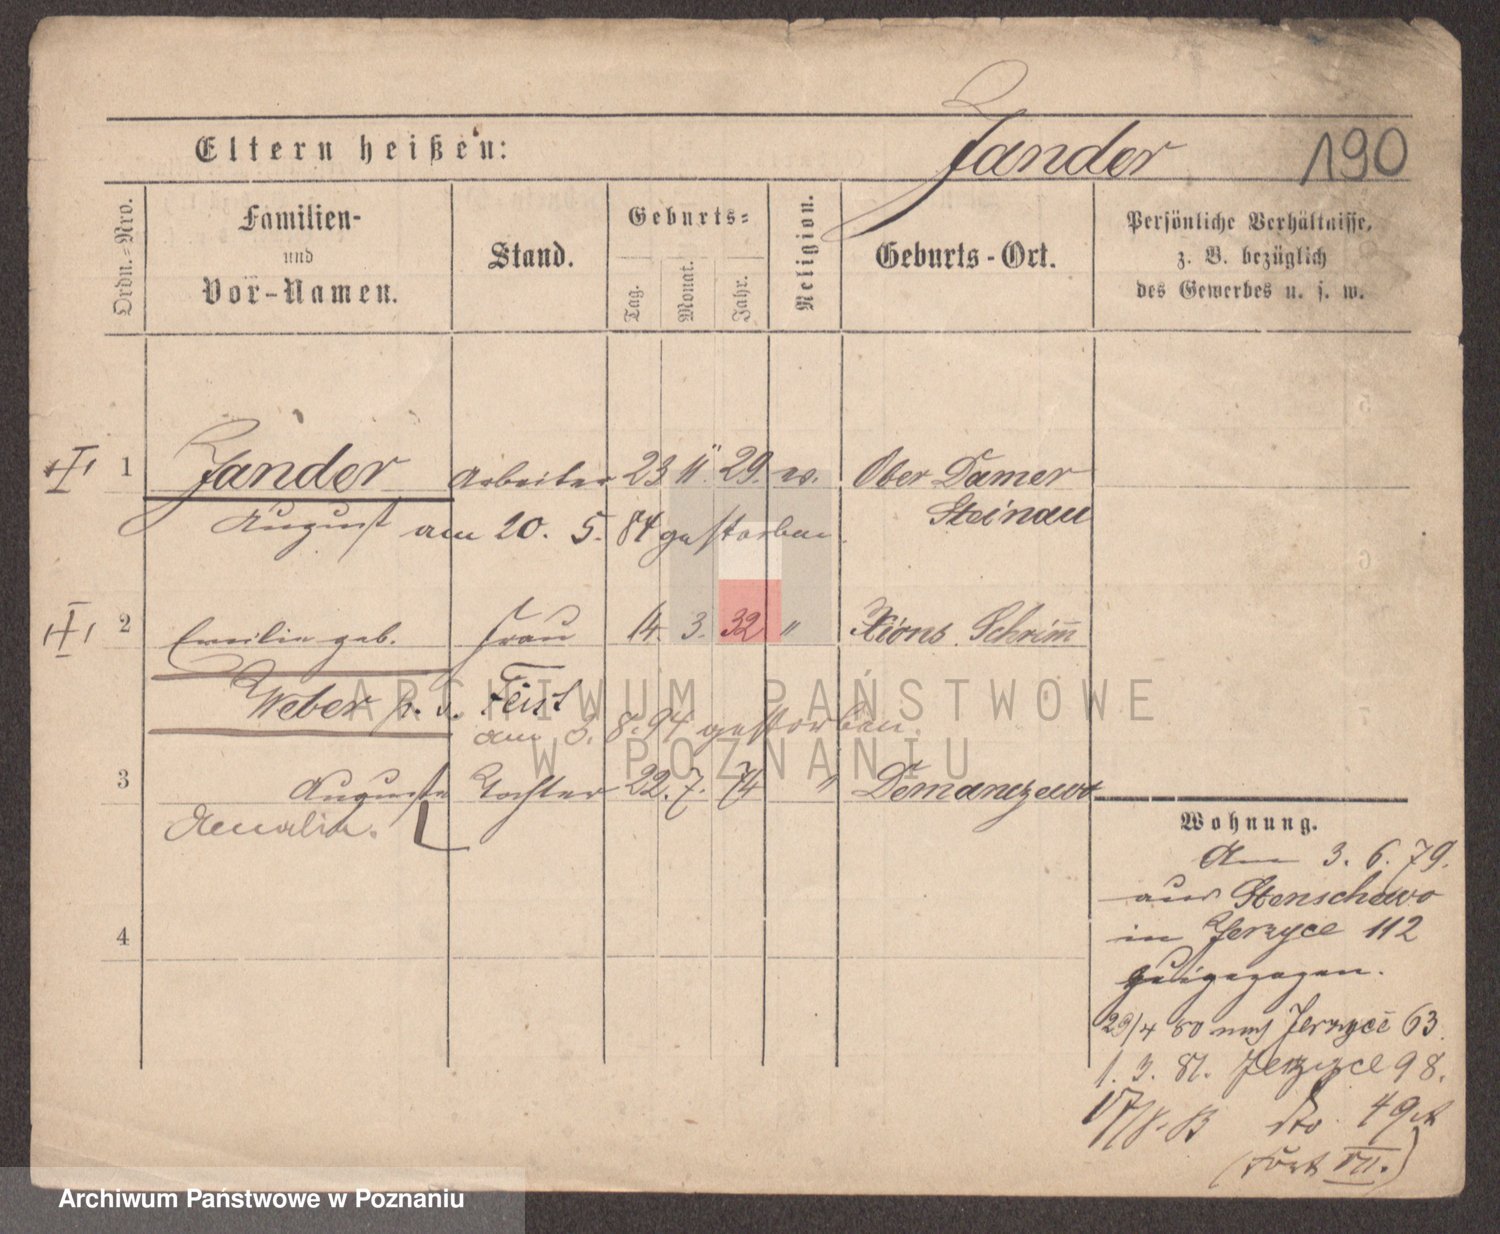 Eltern heißen:
Zander
190
Ordn.-Nro.
Familien-
und
Vor-Namen.
Stand.
Geburts-
Tag.
Monat.
Jahr.
Religion.
Geburts-Ort.
Persönliche Verhältnisse,
z. B. bezüglich
des Gewerbes u. s. w.
1 Zander Arbeiter 23 11. 29. ev. Ober Damer
Steinau
August am 20. 5. 84 gestorben.
2 Emilie geb. Frau 14. 3. 32 " Xions Schrimm
Weber p. v. Feist
am 8. 94 gestorben.
3 Auguste Tochter 22. 7. 74 " Demanczewo
Amalie.
4
Wohnung.
Am 3. 6. 79.
aus Stenschewo
in Jerzyce 112
zugezogen.
29/4 80 nach Jerzyce 63.
1. 3. 81. Jerzyce 98.
17/8. 83 dto 49
(Fort VII.)
ARCHIWUM PAŃSTWOWE
W POZNANIU
Archiwum Państwowe w Poznaniu